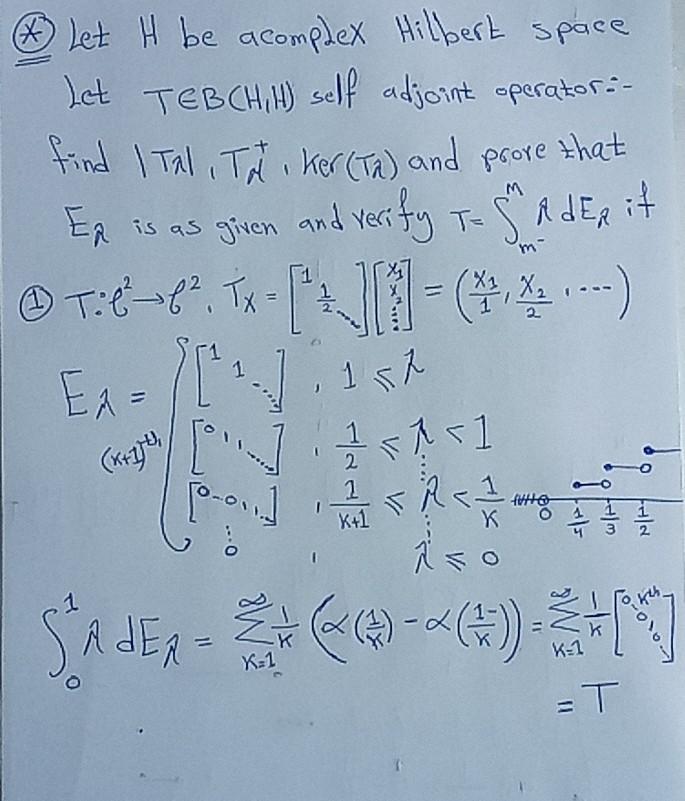 (*) Let H be acomplex Hilbert space
Let T∈B(H,H) self adjoint operator:-
find |Tλ|, Tλ⁺, Ker(Tλ) and prove that
Eλ is as given and verify T= ∫_{m⁻}^{M} λ dEλ if
① T:ℓ²→ℓ², Tx = [1 1/2 ⋱][x₁ x₂ ⋮] = (x₁/1, x₂/2, ...)
Eλ = { [1 1 ⋱] , 1 ≤ λ
[0 1 1 ⋱] , 1/2 ≤ λ < 1
(k+1)th [0 - 0 1 1 ⋱] , 1/(k+1) ≤ λ < 1/k
⋮ 0 , λ ≤ 0
0 1/4 1/3 1/2
∫₀¹ λ dEλ = ∑_{k=1}^{∞} 1/k (α(1/k) - α(1⁻/k)) = ∑_{k=1}^{∞} 1/k [0 kth 0 1 0 ⋱]
= T